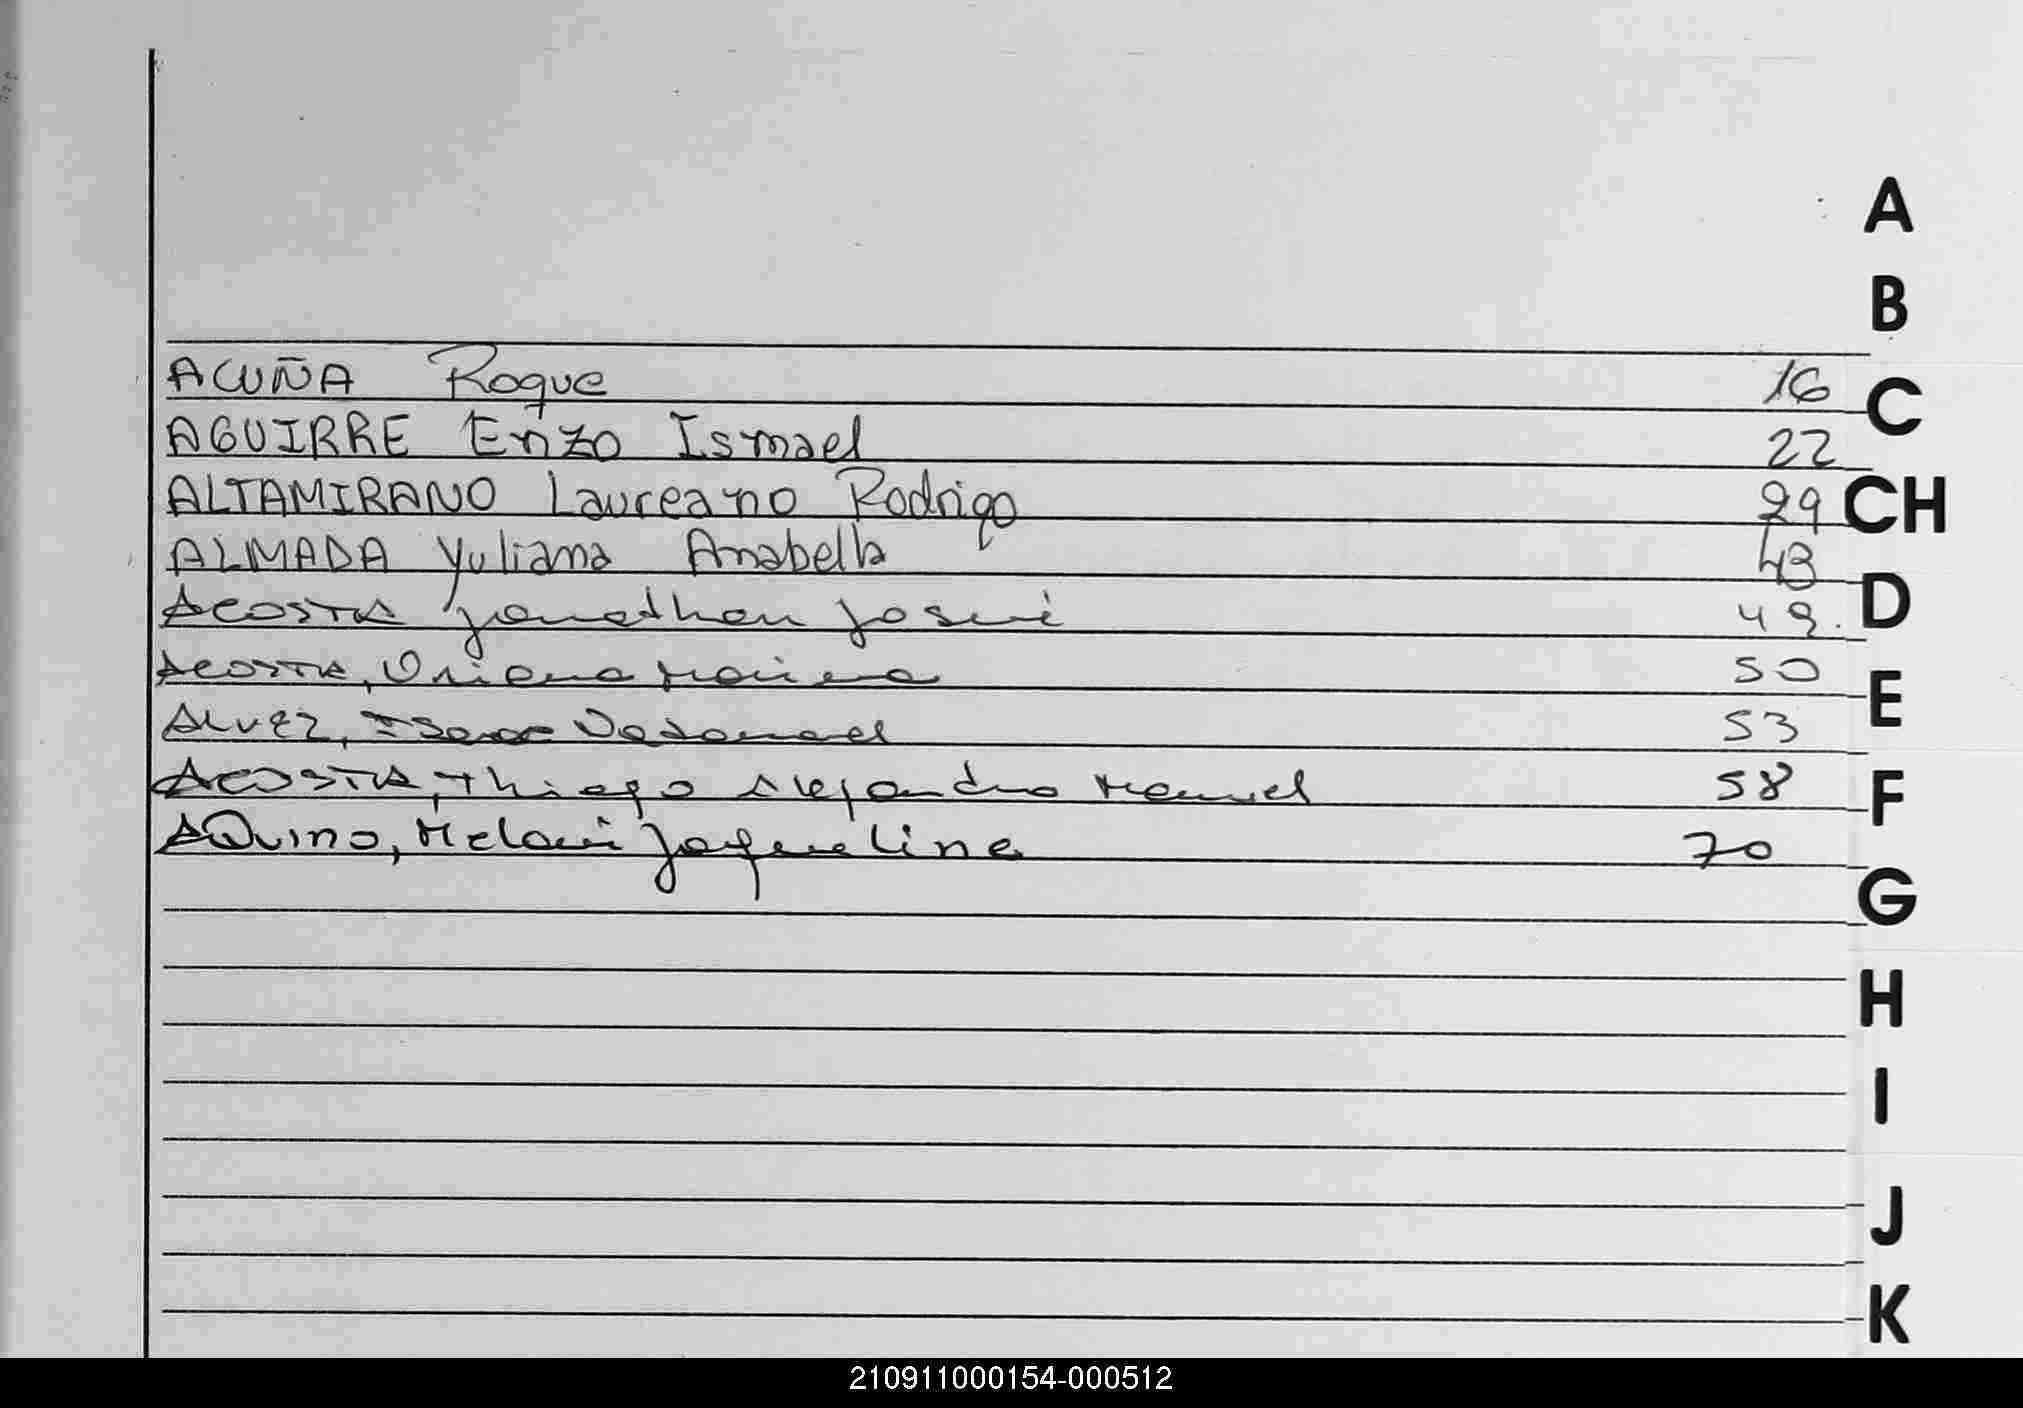 A
B
ACUÑA Roque 16
C
AGUIRRE Enzo Ismael 22
ALTAMIRANO Laureano Rodrigo 29
CH
ALMADA Yuliana Anabella 43
ACOSTA Jonathan Josué 49.
D
ACOSTA, Oriana 50
E
ALVEZ, 53
ACOSTA, Thiago Alejandro Manuel 58
F
AQuino, Melani Jaqueline 70
G
H
I
J
K
210911000154-000512